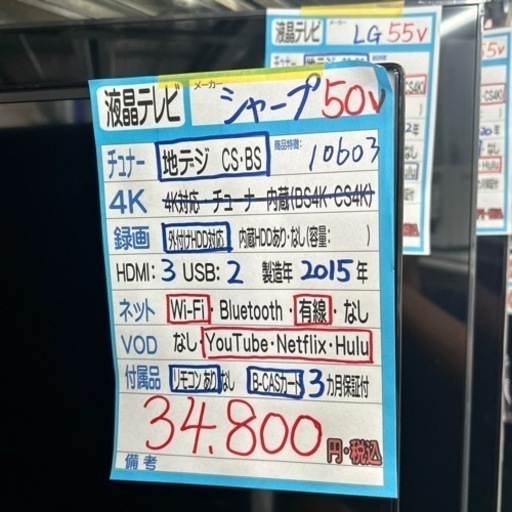 液晶テレビ メーカー シャープ 50v
チュナー 地デジ CS・BS 商品特徴: 10603
4K 4K対応・チューナー内蔵(BS4K・CS4K)
録画 外付けHDD対応 内蔵HDDあり・なし(容量: )
HDMI: 3 USB: 2 製造年 2015年
ネット Wi-Fi・Bluetooth・有線・なし
VOD なし・YouTube・Netflix・Hulu
付属品 リモコンあり なし B-CASカード 3カ月保証付
34.800 円・税込
備考
液晶テレビ メーカー LG 55v
チュナー
CS4K)
2年
なし
Hulu
証付
税込
5v
CS4K)
201 年
なし
Hulu
証付
円・税込